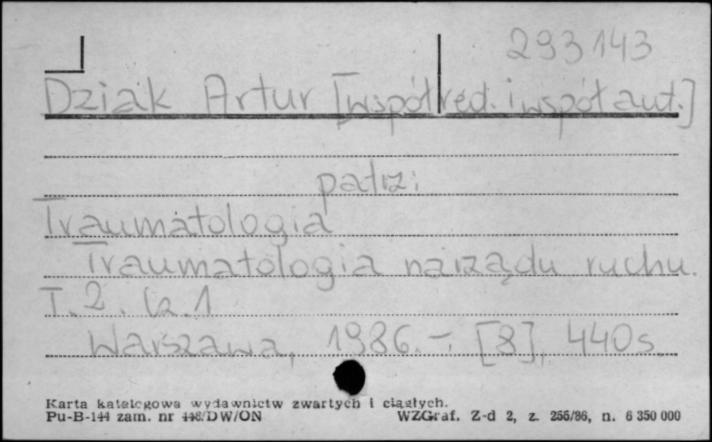 293143
Dziak Artur [współred. i współaut.]
patrz:
Traumatologia
Traumatologia narządu ruchu.
T. 2. Cz. 1
Warszawa, 1986. - [8], 440 s.
Karta katalogowa wydawnictw zwartych i ciągłych.
Pu-B-144 zam. nr 448/DW/ON WZGraf. Z-d 2, z. 256/86, n. 6 350 000